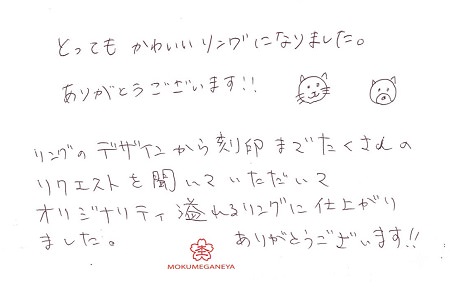 とってもかわいいリングになりました。
ありがとうございます!!
リングのデザインから刻印までたくさんの
リクエストを聞いていただいて
オリジナリティ溢れるリングに仕上がり
ました。 ありがとうございます!!
MOKUMEGANEYA